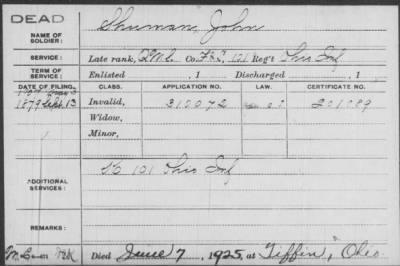 DEAD
NAME OF SOLDIER: Shuman, John
SERVICE: Late rank, Co. F & 101 Reg't Ohio Inf
TERM OF SERVICE: Enlisted , 1 Discharged , 1
DATE OF FILING. CLASS. APPLICATION NO. LAW. CERTIFICATE NO.
1879 Sept. 13 Invalid, 310072 201089
Widow,
Minor,
ADDITIONAL SERVICES: K 101 Ohio Inf
REMARKS:
Died June 7, 1925, at Tiffin, Ohio